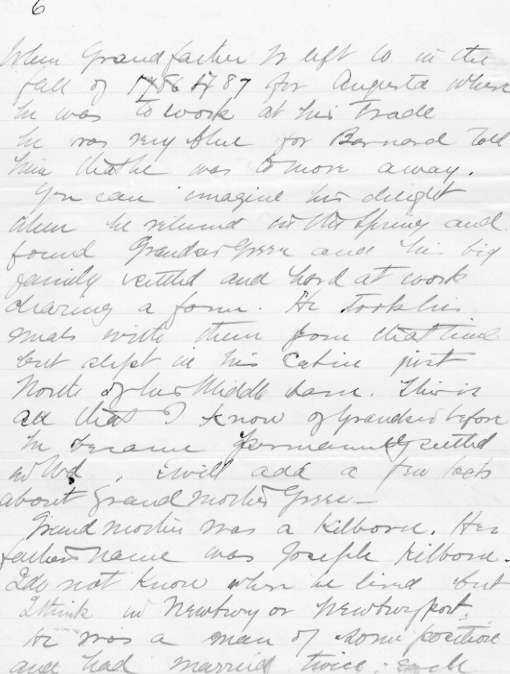 6
When Grandfather W left W in the
fall of 1786 & 87 for Augusta where
he was to work at his trade
he was very blue for Barnard told
him that he was to move away.
You can imagine his delight
when he returned in the Spring and
found Grandsir Green and his big
family settled and hard at work
clearing a farm. He took his
meals with them from that time
but slept in his Cabin just
North of his Middle barn. This is
all that I know of Grandsir before
he became permanently settled
in Wd. I will add a few facts
about Grand Mother Green—
Grand mother was a Kilborn. Her
fathers name was Joseph Kilborn.
I do not know where he lived but
I think in Newbury or Newburyport.
He was a man of some position
and had married twice: each